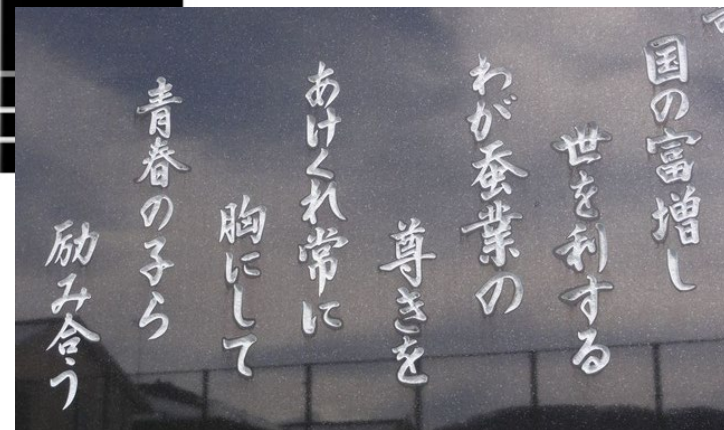 国の富増し
世を利する
わが蚕業の
尊きを
あけくれ常に
胸にして
青春の子ら
励み合う